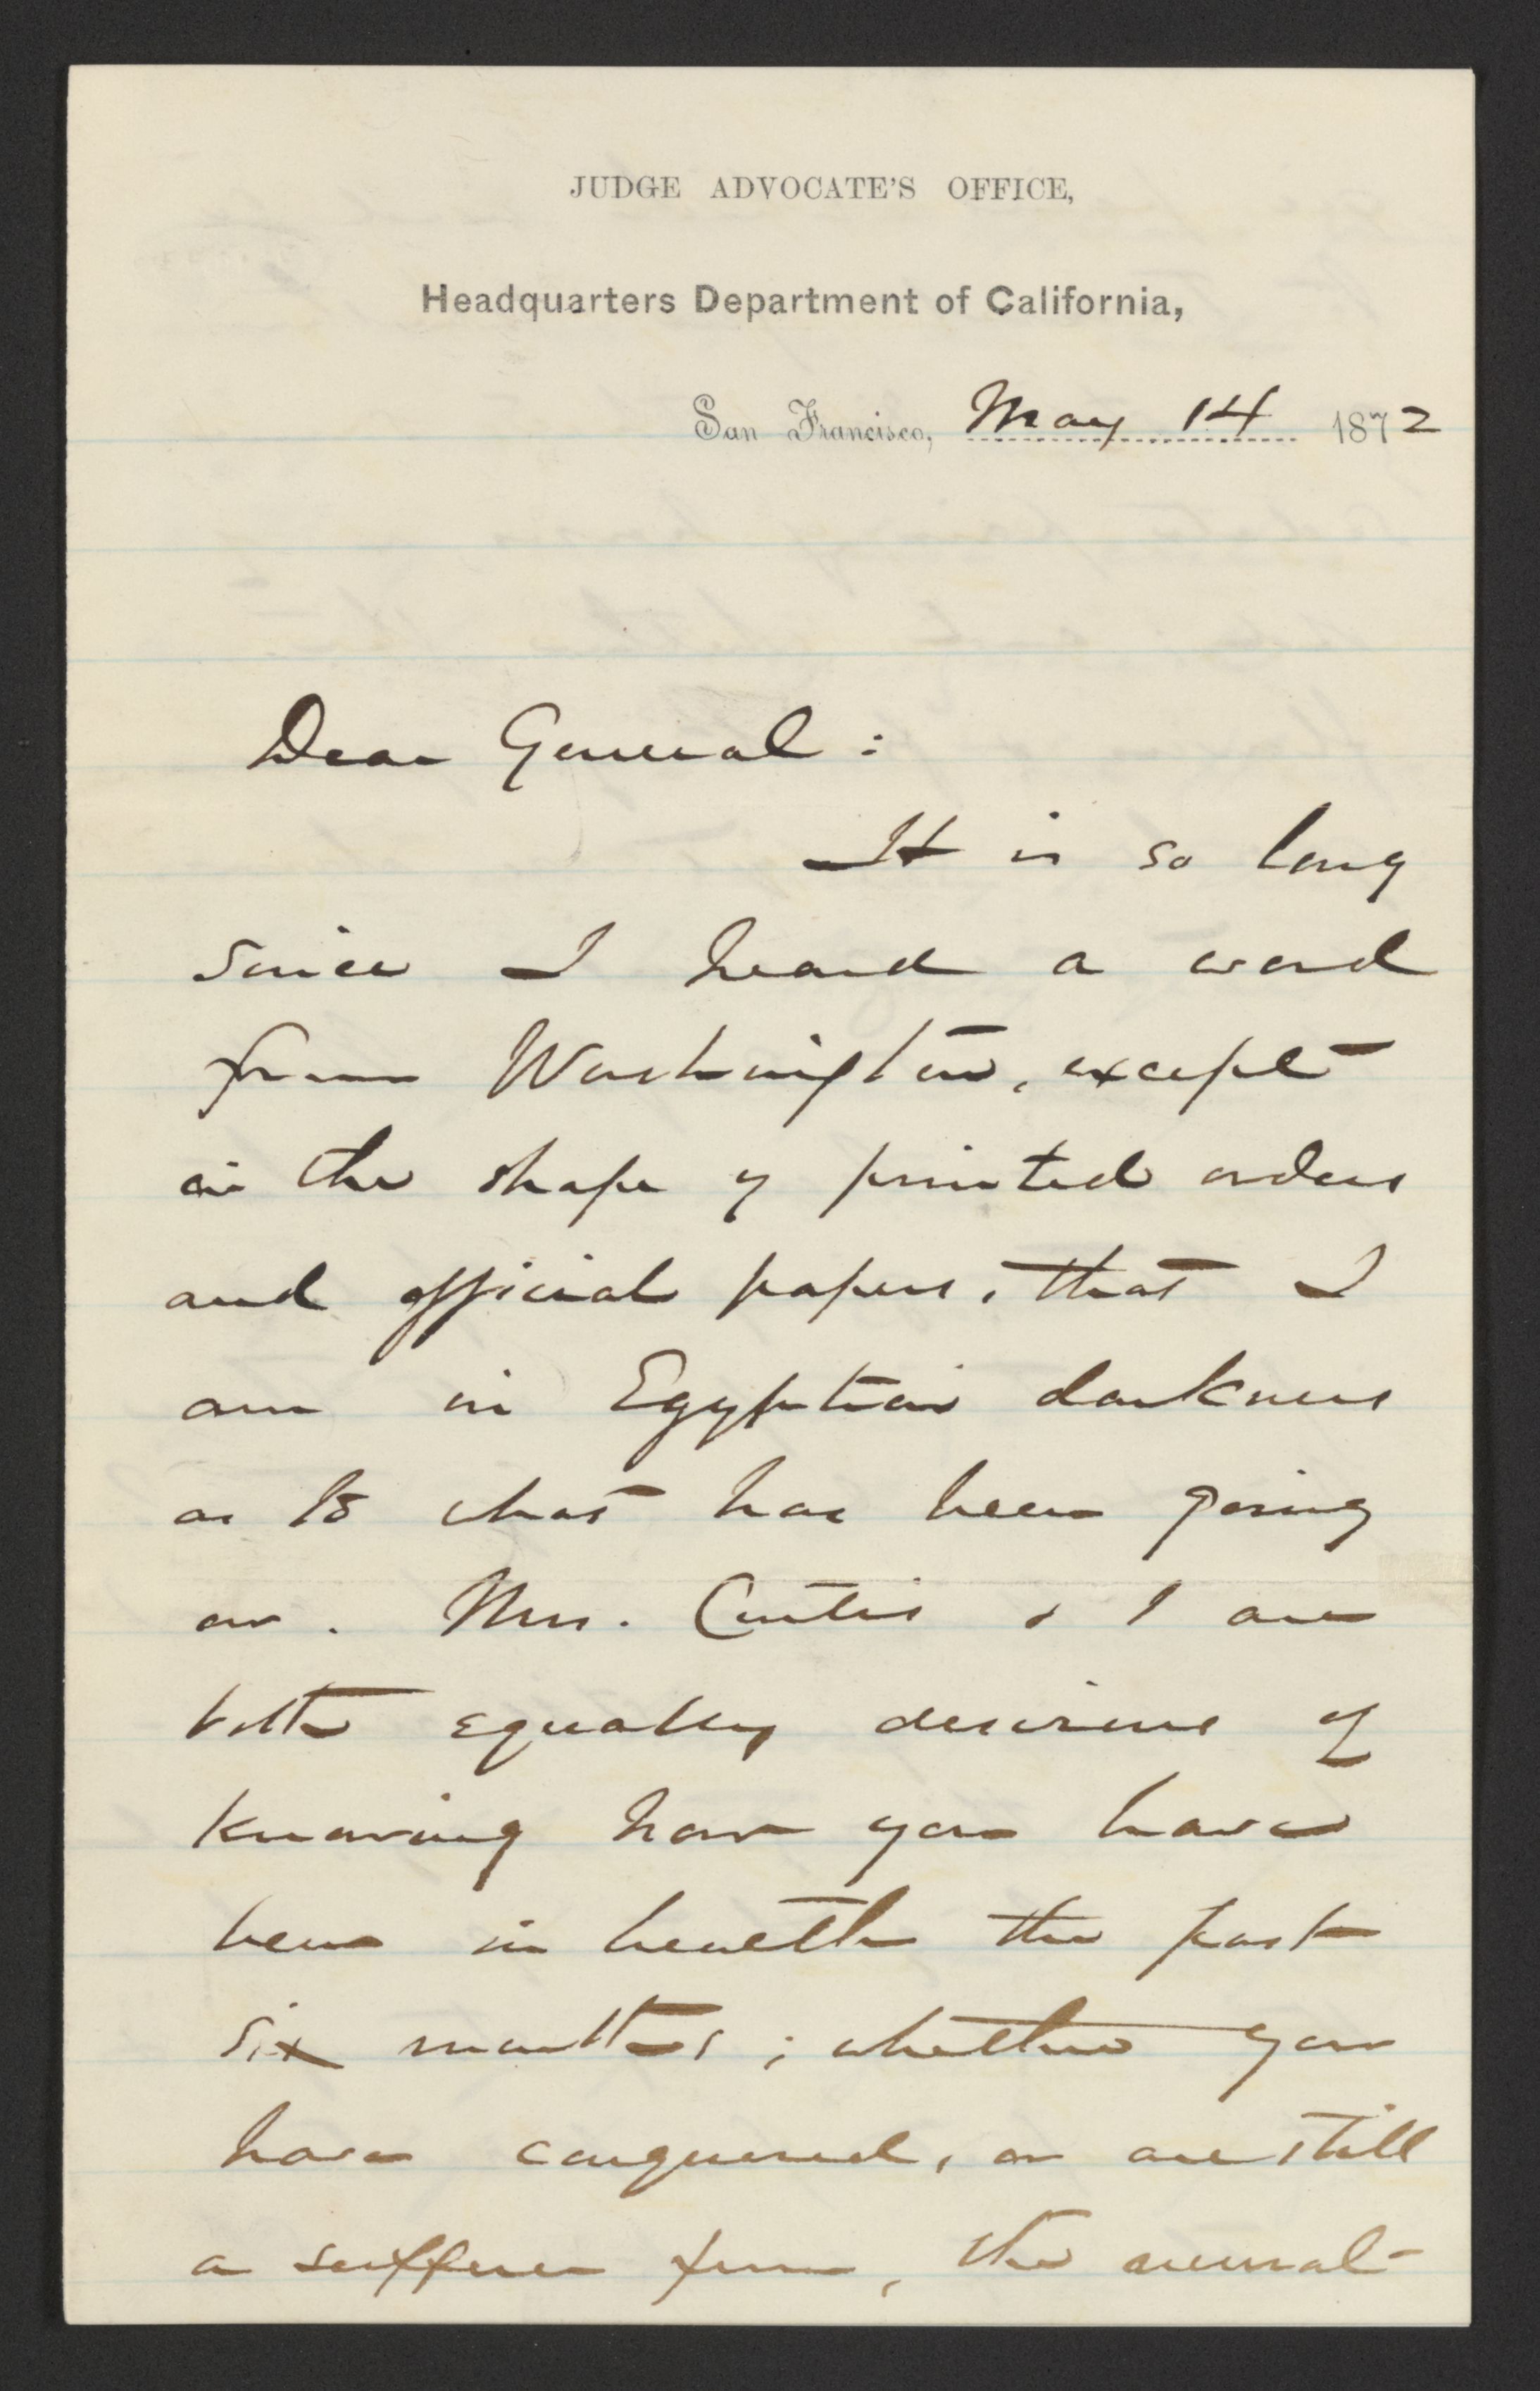 JUDGE ADVOCATE'S OFFICE,
Headquarters Department of California,
San Francisco, May 14 1872
Dear General :
It is so long
since I heard a word
from Washington, except
in the shape of printed orders
and official papers, that I
am in Egyptian darkness
as to what has been going
on. Mrs. Curtis & I are
both equally desirous of
knowing how you have
been in health the past
six months ; whether you
have conquered, or are still
a sufferer from, the neural-